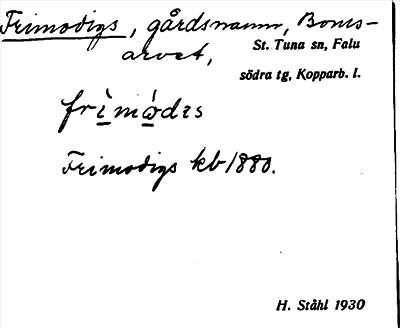 Frimodigs, gårdsnamn, Boms-
arvet, St. Tuna sn, Falu
södra tg, Kopparb. l.
frìmódıs
Frimodigs kb 1880.
H. Ståhl 1930